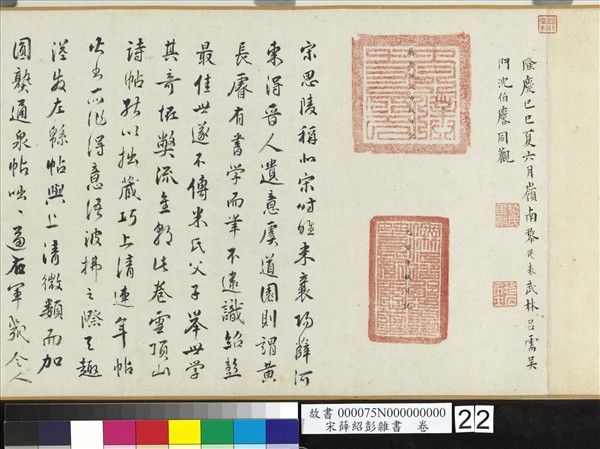 隆慶己巳夏六月嶺南黎民表武林呂需吳
門沈伯同觀
宋思陵稱北宋時唯米襄陽薛河
東得晉人遺意虞道園則謂黃
長睿有書學而筆不逮識紹彭
最佳世遂不傳米氏父子舉世學
其奇怪弊流金朝此卷雲頂山
詩帖能以拙藏巧上清連年帖
得意語波拂之際天趣
溢發左緜帖與上清微類而加
圓熟通泉帖咄咄逼右軍幾令人
故書 000075N000000000
宋薛紹彭雜書 卷
22